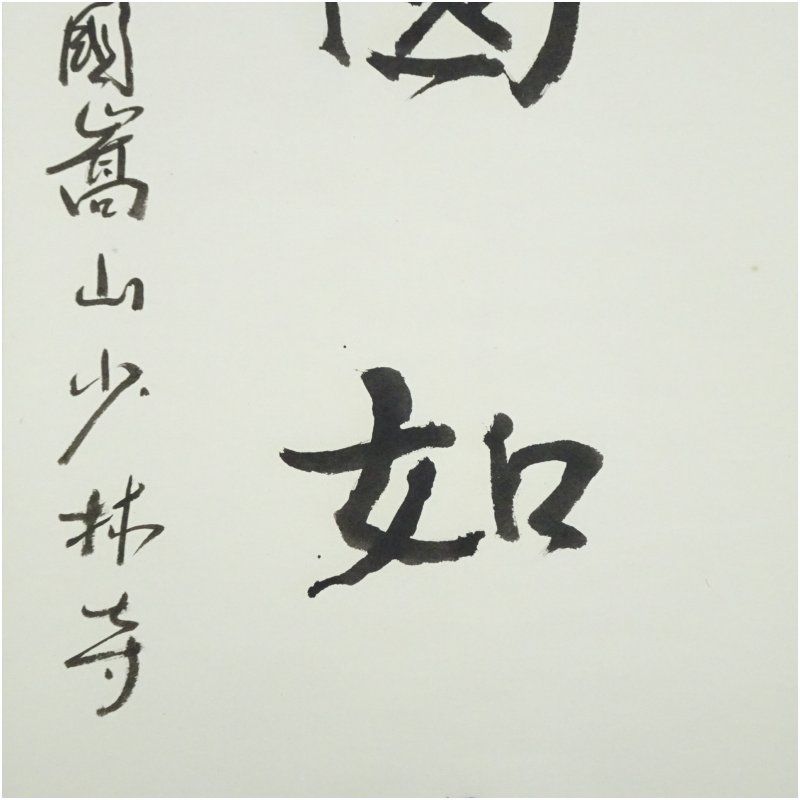 如
國嵩山少林寺